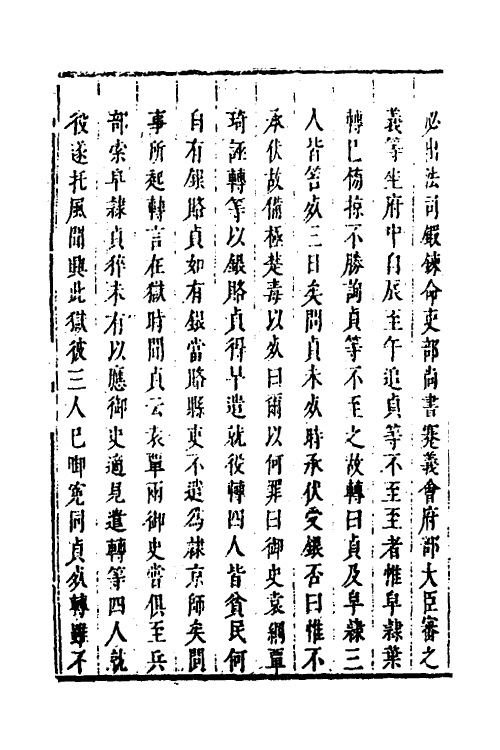 必出法司鍛鍊命吏部尚書蹇義會府部大臣審之
義等坐府中自辰至午追貞等不至至者惟皁隸葉
轉已搒掠不勝詢貞等不至之故轉曰貞及皁隸三
人皆笞死三日矣問貞未死時承伏受銀否曰惟不
承伏故備極楚毒以死曰爾以何罪曰御史袁綱覃
珩誣轉等以銀賂貞得早遣就役轉四人皆貧民何
自有銀賂貞如有銀當賂縣吏不遣為隸京師矣問
事所起轉言在獄時聞貞云袁覃兩御史嘗俱至兵
部索皁隸貞猝未有以應御史適見遣轉等四人就
役遂托風聞興此獄彼三人已啣冤同貞死轉雖不